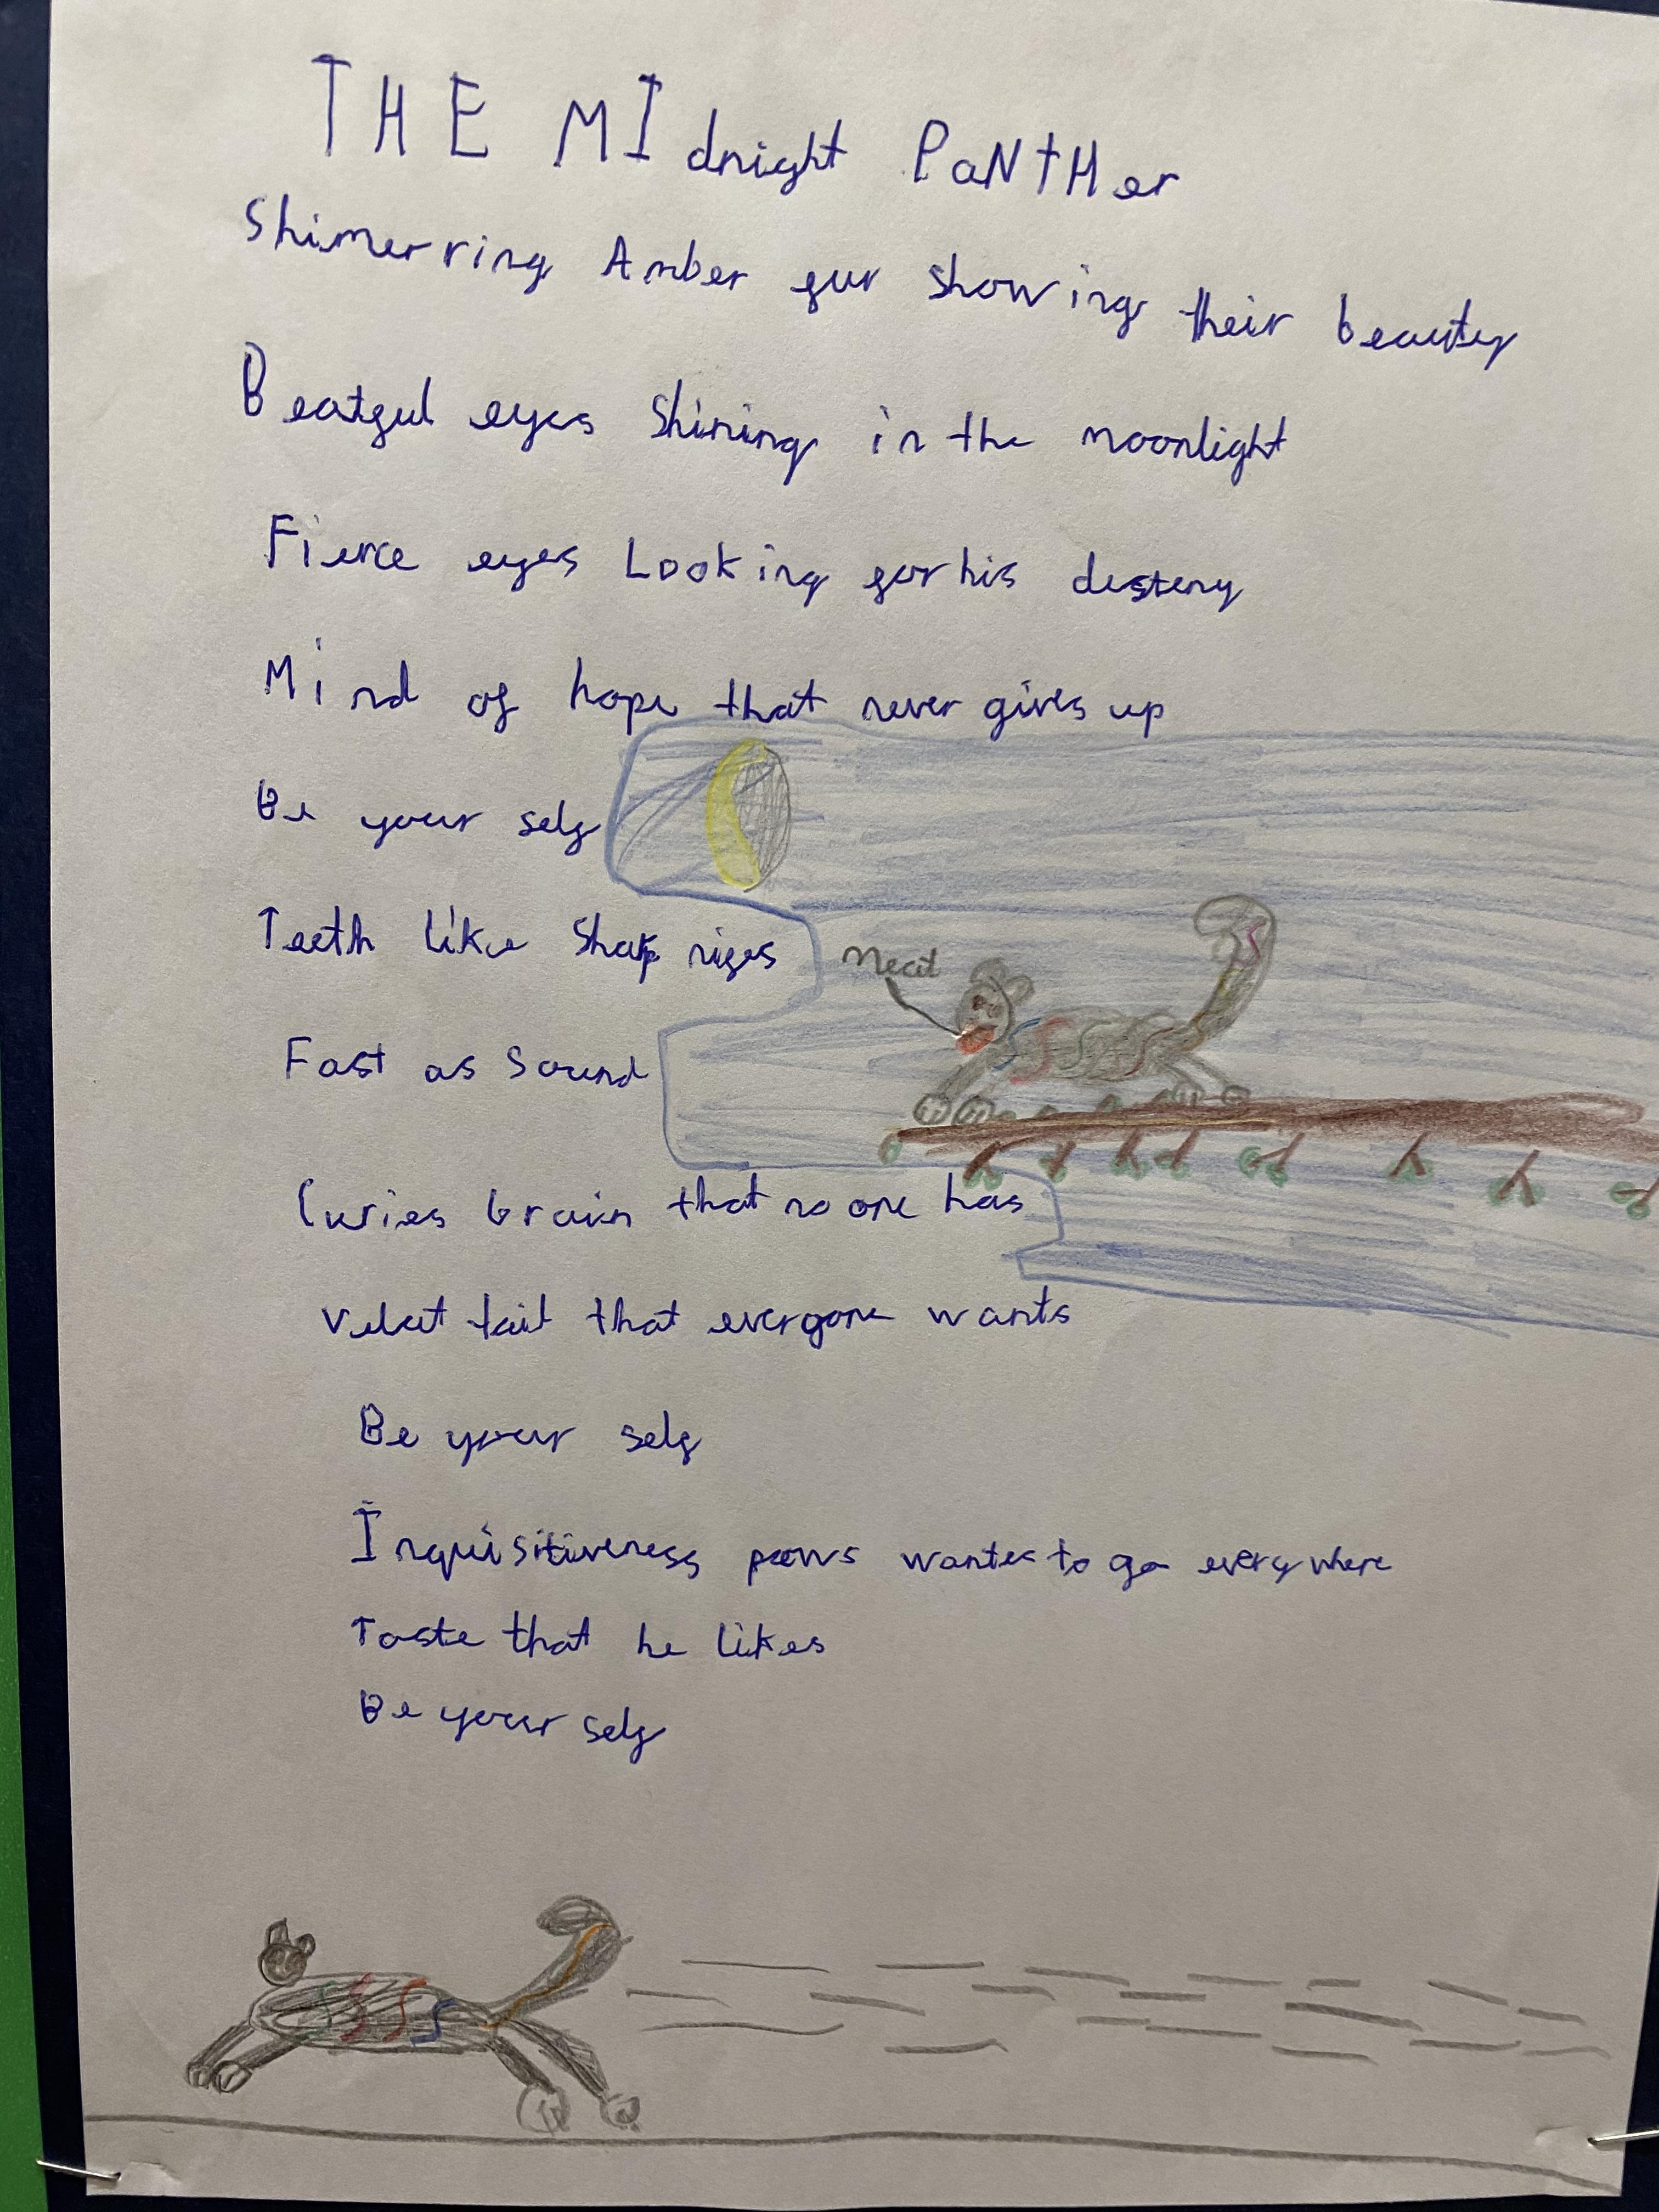 THE MIdnight PaNtHer
Shimerring Amber fur showing their beauty
Beatful eyes Shining in the moonlight
Fierce eyes Looking for his desteny
Mind of hope that never gives up
Be your self
Teeth like Sharp nifes
Meat
Fast as Sound
Curies brain that no one has
Velvet tail that everyone wants
Be your self
Inquisitiveness paws wantes to go everywhere
Taste that he likes
Be your self